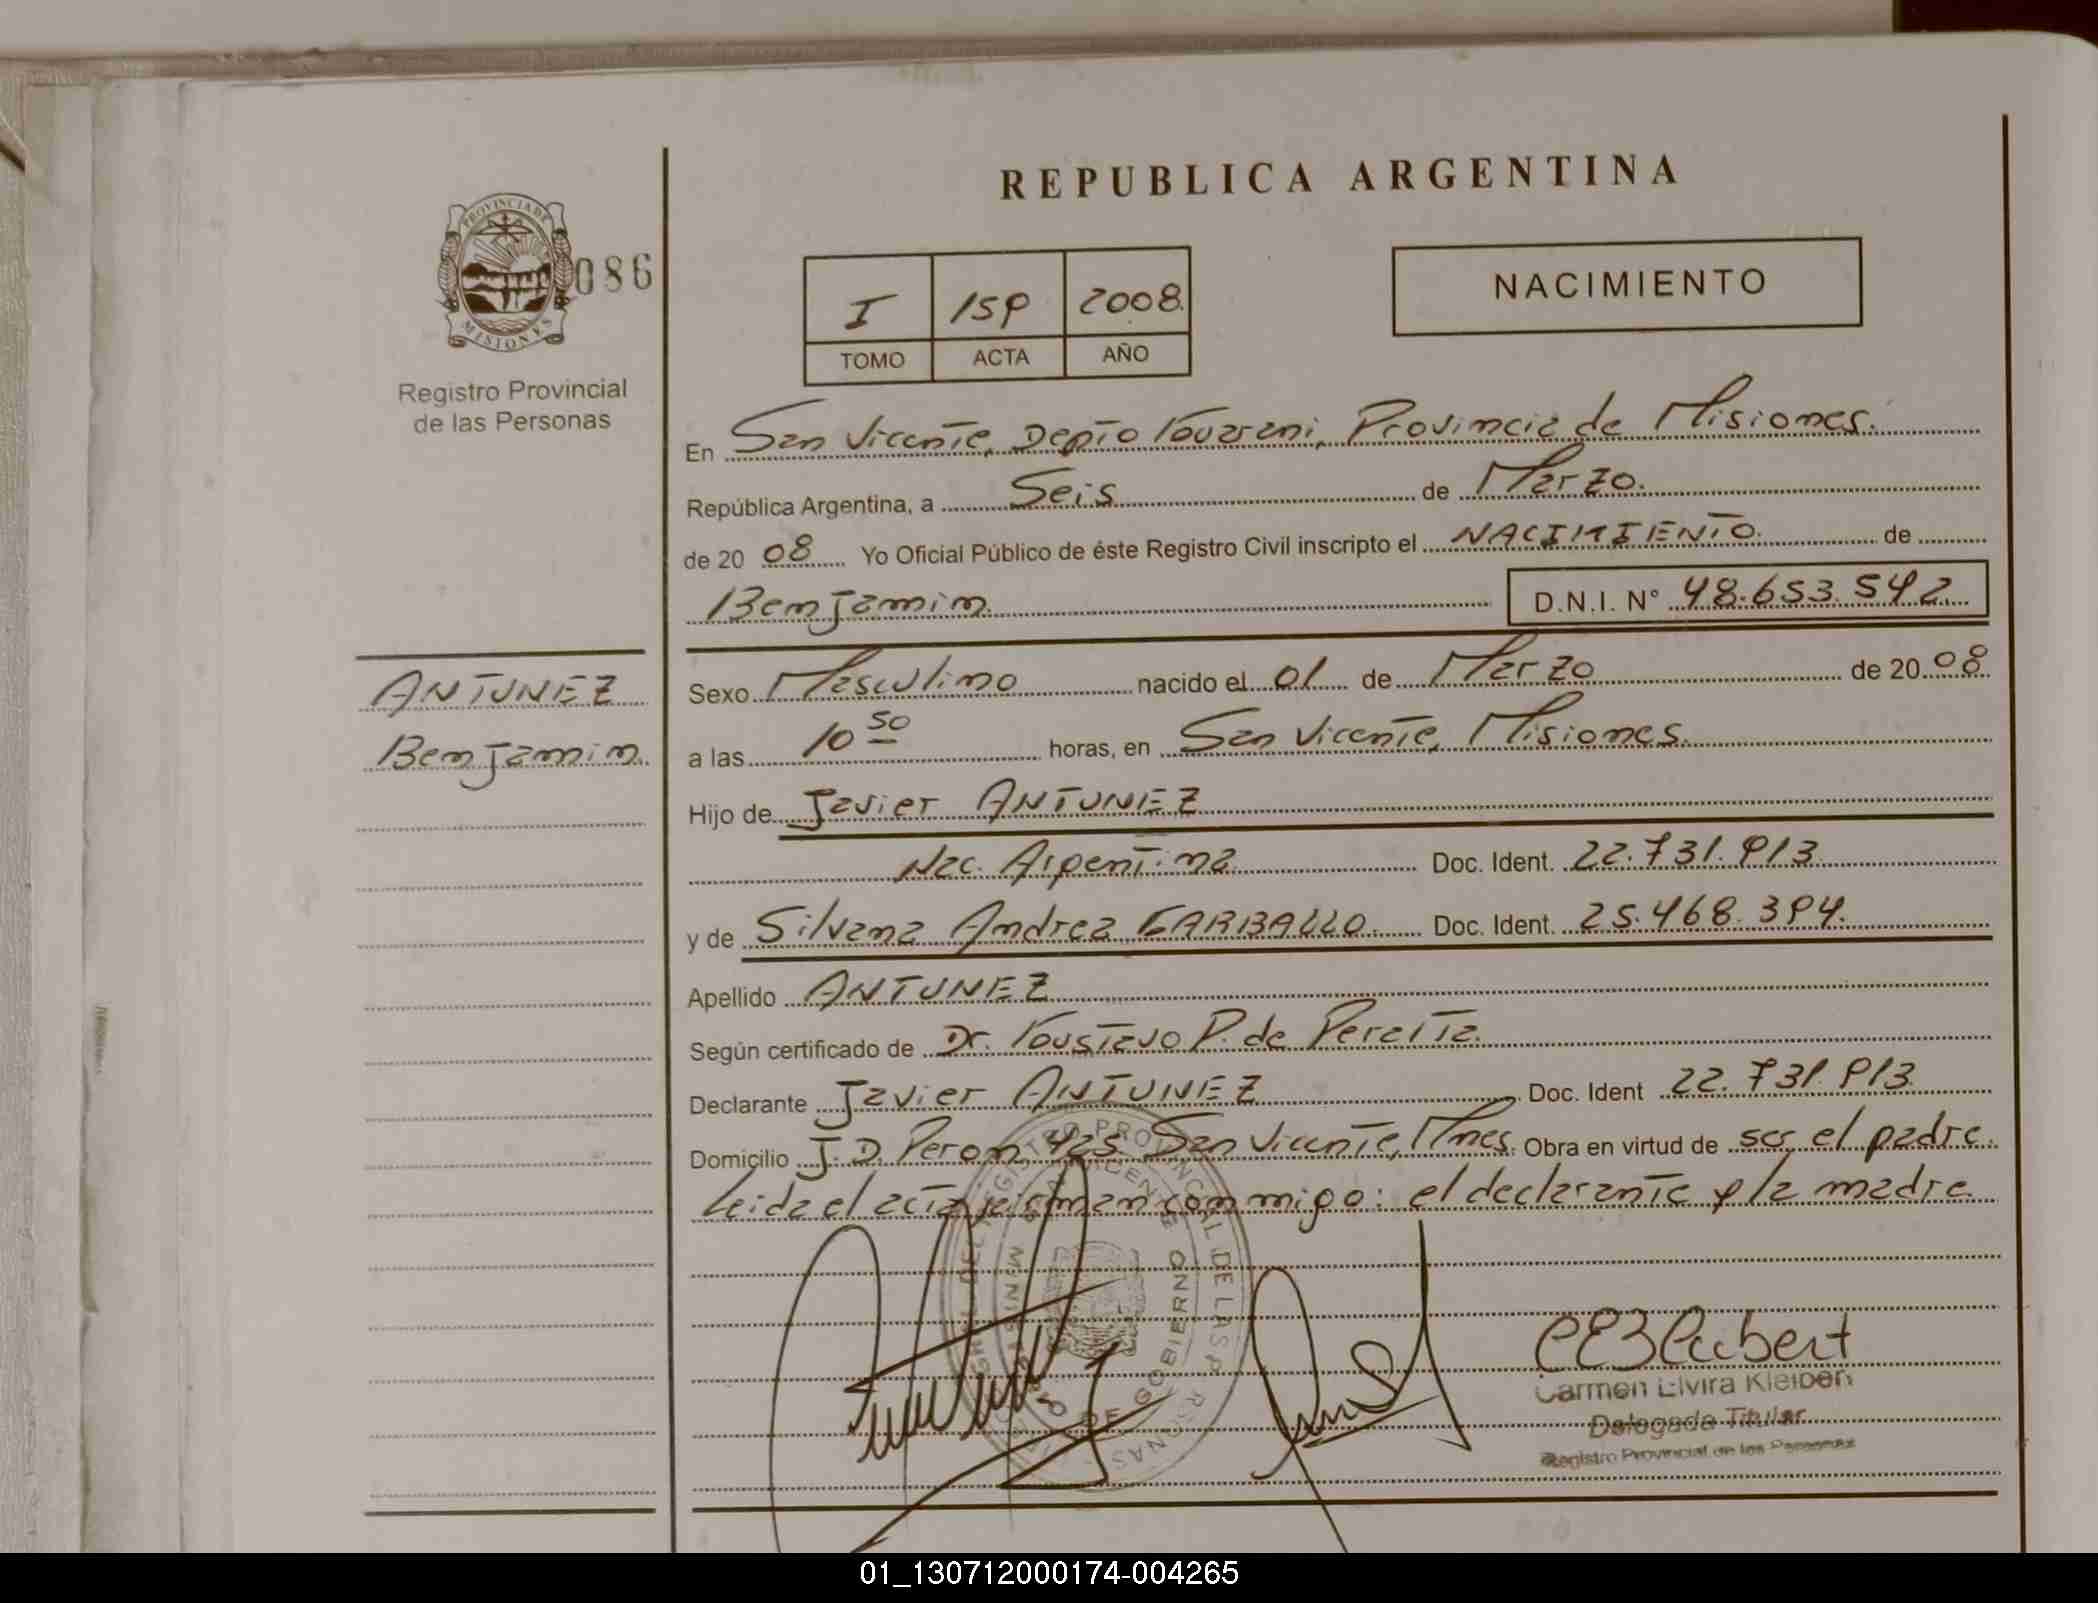 REPUBLICA ARGENTINA
PROVINCIA DE
MISIONES
086
Registro Provincial
de las Personas
I 159 2008.
TOMO ACTA AÑO
NACIMIENTO
En San Vicente, Depto Guarani, Provincia de Misiones.
República Argentina, a Seis de Marzo.
de 20 08 Yo Oficial Público de éste Registro Civil inscripto el NACIMIENTO. de
Benjamin. D.N.I. N° 48.653.542.
ANTUNEZ
Benjamin.
Sexo Masculino nacido el 01 de Marzo de 20 08
a las 10 50 horas, en San Vicente, Misiones.
Hijo de Javier ANTUNEZ
Nac. Argentina Doc. Ident. 22.731.913
y de Silvana Andrea CARBALLO. Doc. Ident. 25.468.394.
Apellido ANTUNEZ
Según certificado de Dr. Gustavo P. de Peralta.
Declarante Javier ANTUNEZ Doc. Ident 22.731.913
Domicilio J. D. Peron 425 San Vicente, Mnes. Obra en virtud de ser el padre.
Leida el acta firman conmigo: el declarante y la madre.
REGISTRO PROVINCIAL DE LAS PERSONAS
SAN VICENTE
MINISTERIO DE GOBIERNO
Carmen Elvira Kleibert
Delegada Titular
Registro Provincial de las Personas
01_130712000174-004265